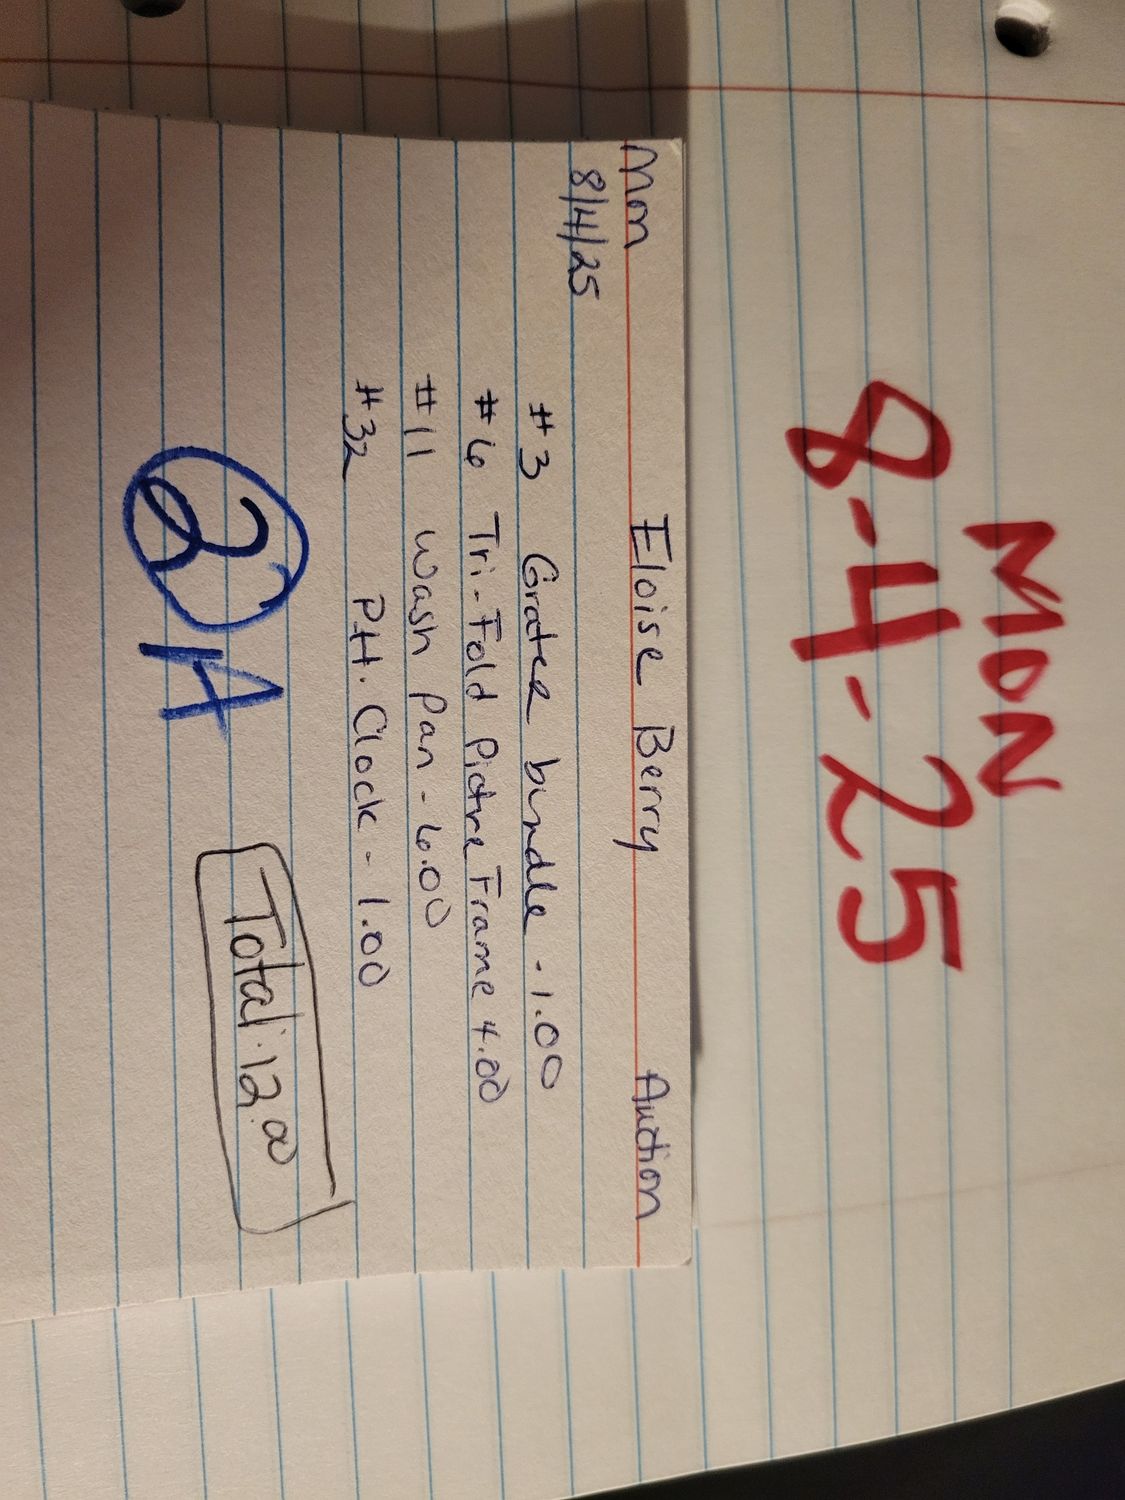 MON
8-4-25
Mon Eloise Berry Auction
8/4/25
#3 Grater bundle - 1.00
#6 Tri-Fold Pictre Frame 4.00
#11 Wash Pan - 6.00
#32 P.H. Clock - 1.00
A
Total: 12.00